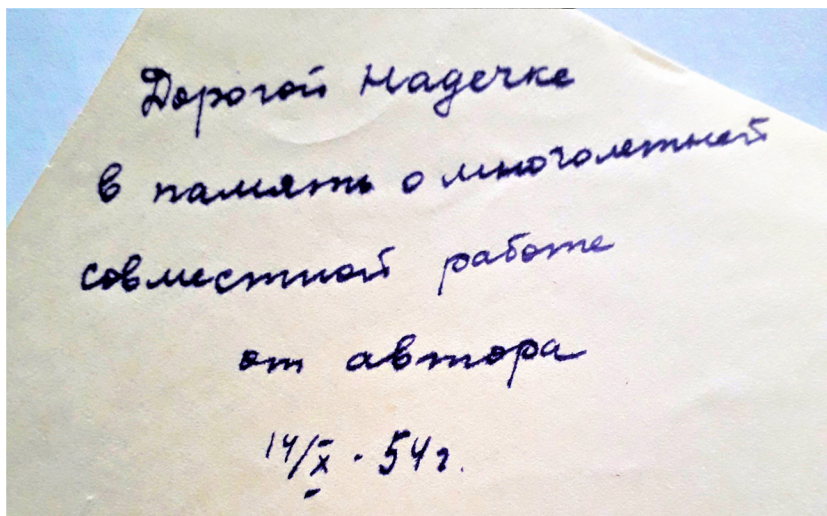 Дорогой Надечке
в память о многолетней
совместной работе
от автора
14/X - 54 г.